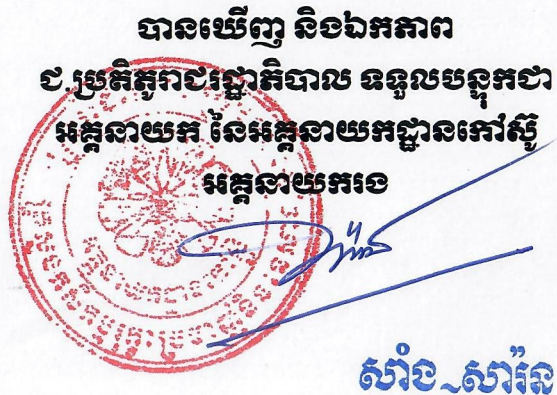 បានឃើញ និងឯកភាព
ជ.ប្រតិភូរាជរដ្ឋាភិបាល ទទួលបន្ទុកជា
អគ្គនាយក នៃអគ្គនាយកដ្ឋានកៅស៊ូ
អគ្គនាយករង
សាំង_សារ៉ន